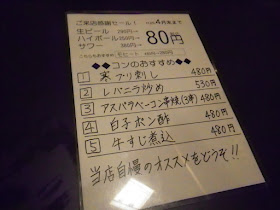 ご来店感謝セール！
生ビール 290円→
ハイボール 350円→ 80円
サワー 300円→
◆◆コンのおすすめ◆◆
1 寒ブリ刺し 480円
2 レバニラ炒め 530円
3 アスパラベーコン串焼(3本) 480円
4 白子ポン酢 480円
5 牛すじ煮込 480円
当店自慢のオススメをどうぞ!!